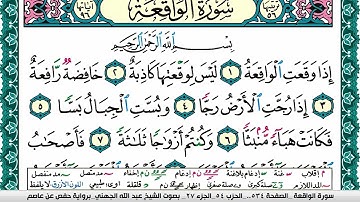 سُورَةُ الوَاقِعَةِ
بِسْمِ اللَّهِ الرَّحْمَٰنِ الرَّحِيمِ
إِذَا وَقَعَتِ الْوَاقِعَةُ ١ لَيْسَ لِوَقْعَتِهَا كَاذِبَةٌ ٢ خَافِضَةٌ رَّافِعَةٌ
٣ إِذَا رُجَّتِ الْأَرْضُ رَجًّا ٤ وَبُسَّتِ الْجِبَالُ بَسًّا ٥
فَكَانَتْ هَبَاءً مُّنبَثًّا ٦ وَكُنتُمْ أَزْوَاجًا ثَلَاثَةً ٧ فَأَصْحَابُ
سورة الواقعة . الصفحة ٥٣٤.. الحزب ٥٤ . الجزء ٢٧ . بصوت الشيخ عبد الله الجهني . برواية حفص عن عاصم